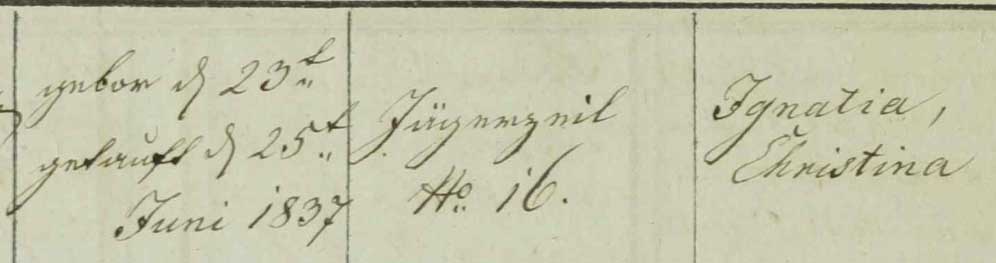 gebor d 23t
getauft d 25t
Juni 1837
Jägerzeil
No 16.
Ignatia,
Christina